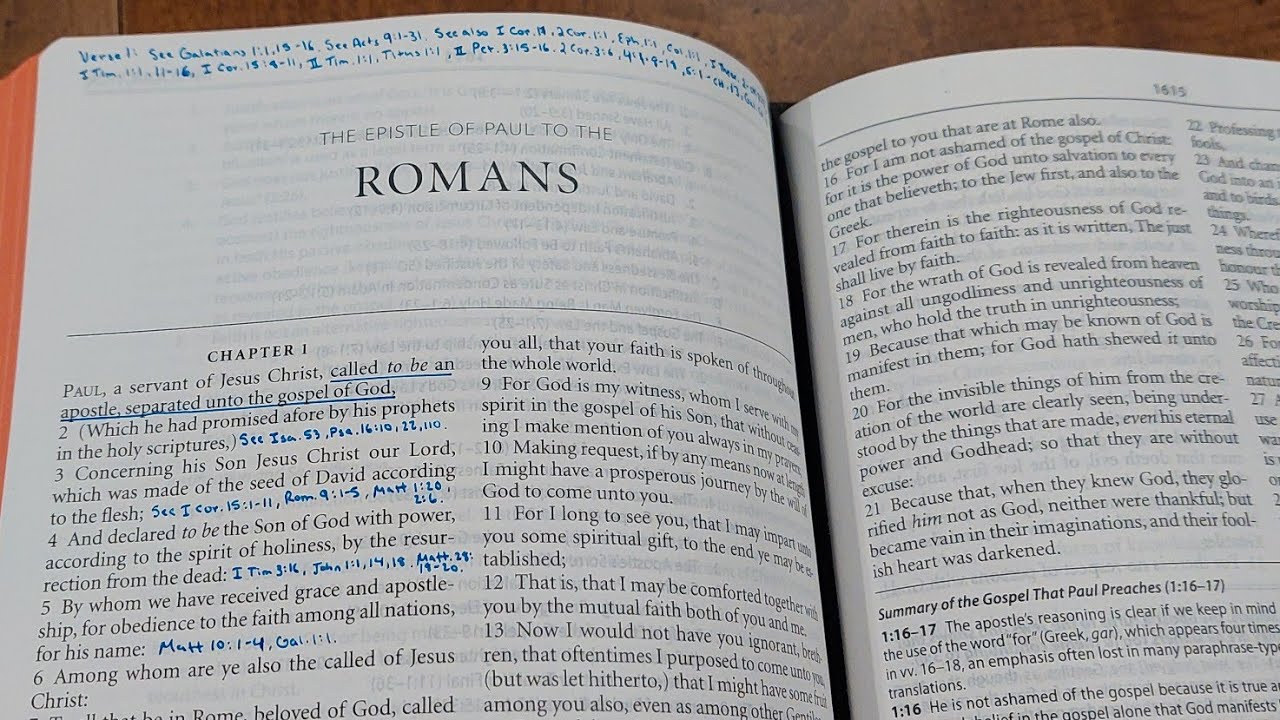 Verse 1: See Galatians 1:1, 15-16. See Acts 9:1-31. See also I Cor. 1:1, 2 Cor. 1:1, Eph. 1:1, Col. 1:1,
I Tim. 1:1, 11-16, I Cor. 15:8-11, II Tim. 1:1, Titus 1:1, II Pet. 3:15-16. 2 Cor. 3:6,
THE EPISTLE OF PAUL TO THE
ROMANS
CHAPTER 1
PAUL, a servant of Jesus Christ, called to be an
apostle, separated unto the gospel of God,
2 (Which he had promised afore by his prophets
in the holy scriptures,) See Isa. 53, Psa. 16:10, 22, 110.
3 Concerning his Son Jesus Christ our Lord,
which was made of the seed of David according
to the flesh; See I Cor. 15:1-11, Rom. 9:1-5, Matt 1:20
2:6.
4 And declared to be the Son of God with power,
according to the spirit of holiness, by the resur-
rection from the dead: I Tim 3:16, John 1:1, 14, 18. Matt. 28:
18-20.
5 By whom we have received grace and apostle-
ship, for obedience to the faith among all nations,
for his name: Matt 10:1-4, Gal. 1:1.
6 Among whom are ye also the called of Jesus
Christ:
be in Rome, beloved of God, called
you all, that your faith is spoken of throughout
the whole world.
9 For God is my witness, whom I serve with my
spirit in the gospel of his Son, that without ceas-
ing I make mention of you always in my prayers;
10 Making request, if by any means now at length
I might have a prosperous journey by the will of
God to come unto you.
11 For I long to see you, that I may impart unto
you some spiritual gift, to the end ye may be es-
tablished;
12 That is, that I may be comforted together with
you by the mutual faith both of you and me.
13 Now I would not have you ignorant, breth-
ren, that oftentimes I purposed to come unto you,
(but was let hitherto,) that I might have some fruit
among you also, even as among other Gentiles
1615
the gospel to you that are at Rome also.
16 For I am not ashamed of the gospel of Christ:
for it is the power of God unto salvation to every
one that believeth; to the Jew first, and also to the
Greek.
17 For therein is the righteousness of God re-
vealed from faith to faith: as it is written, The just
shall live by faith.
18 For the wrath of God is revealed from heaven
against all ungodliness and unrighteousness of
men, who hold the truth in unrighteousness;
19 Because that which may be known of God is
manifest in them; for God hath shewed it unto
them.
20 For the invisible things of him from the cre-
ation of the world are clearly seen, being under-
stood by the things that are made, even his eternal
power and Godhead; so that they are without
excuse:
21 Because that, when they knew God, they glo-
rified him not as God, neither were thankful; but
became vain in their imaginations, and their fool-
ish heart was darkened.
Summary of the Gospel That Paul Preaches (1:16–17)
1:16–17 The apostle's reasoning is clear if we keep in mind
the use of the word "for" (Greek, gar), which appears four times
in vv. 16–18, an emphasis often lost in many paraphrase-type
translations.
1:16 He is not ashamed of the gospel because it is true an
belief in the gospel alone that God manifests
22 Professing
fools,
23 And chan
God into an
and to birds
things.
24 Wheref
ness throu
honour t
25 Who
worship
the Cre
26 For
affect
natur
27 A
use
wa
is